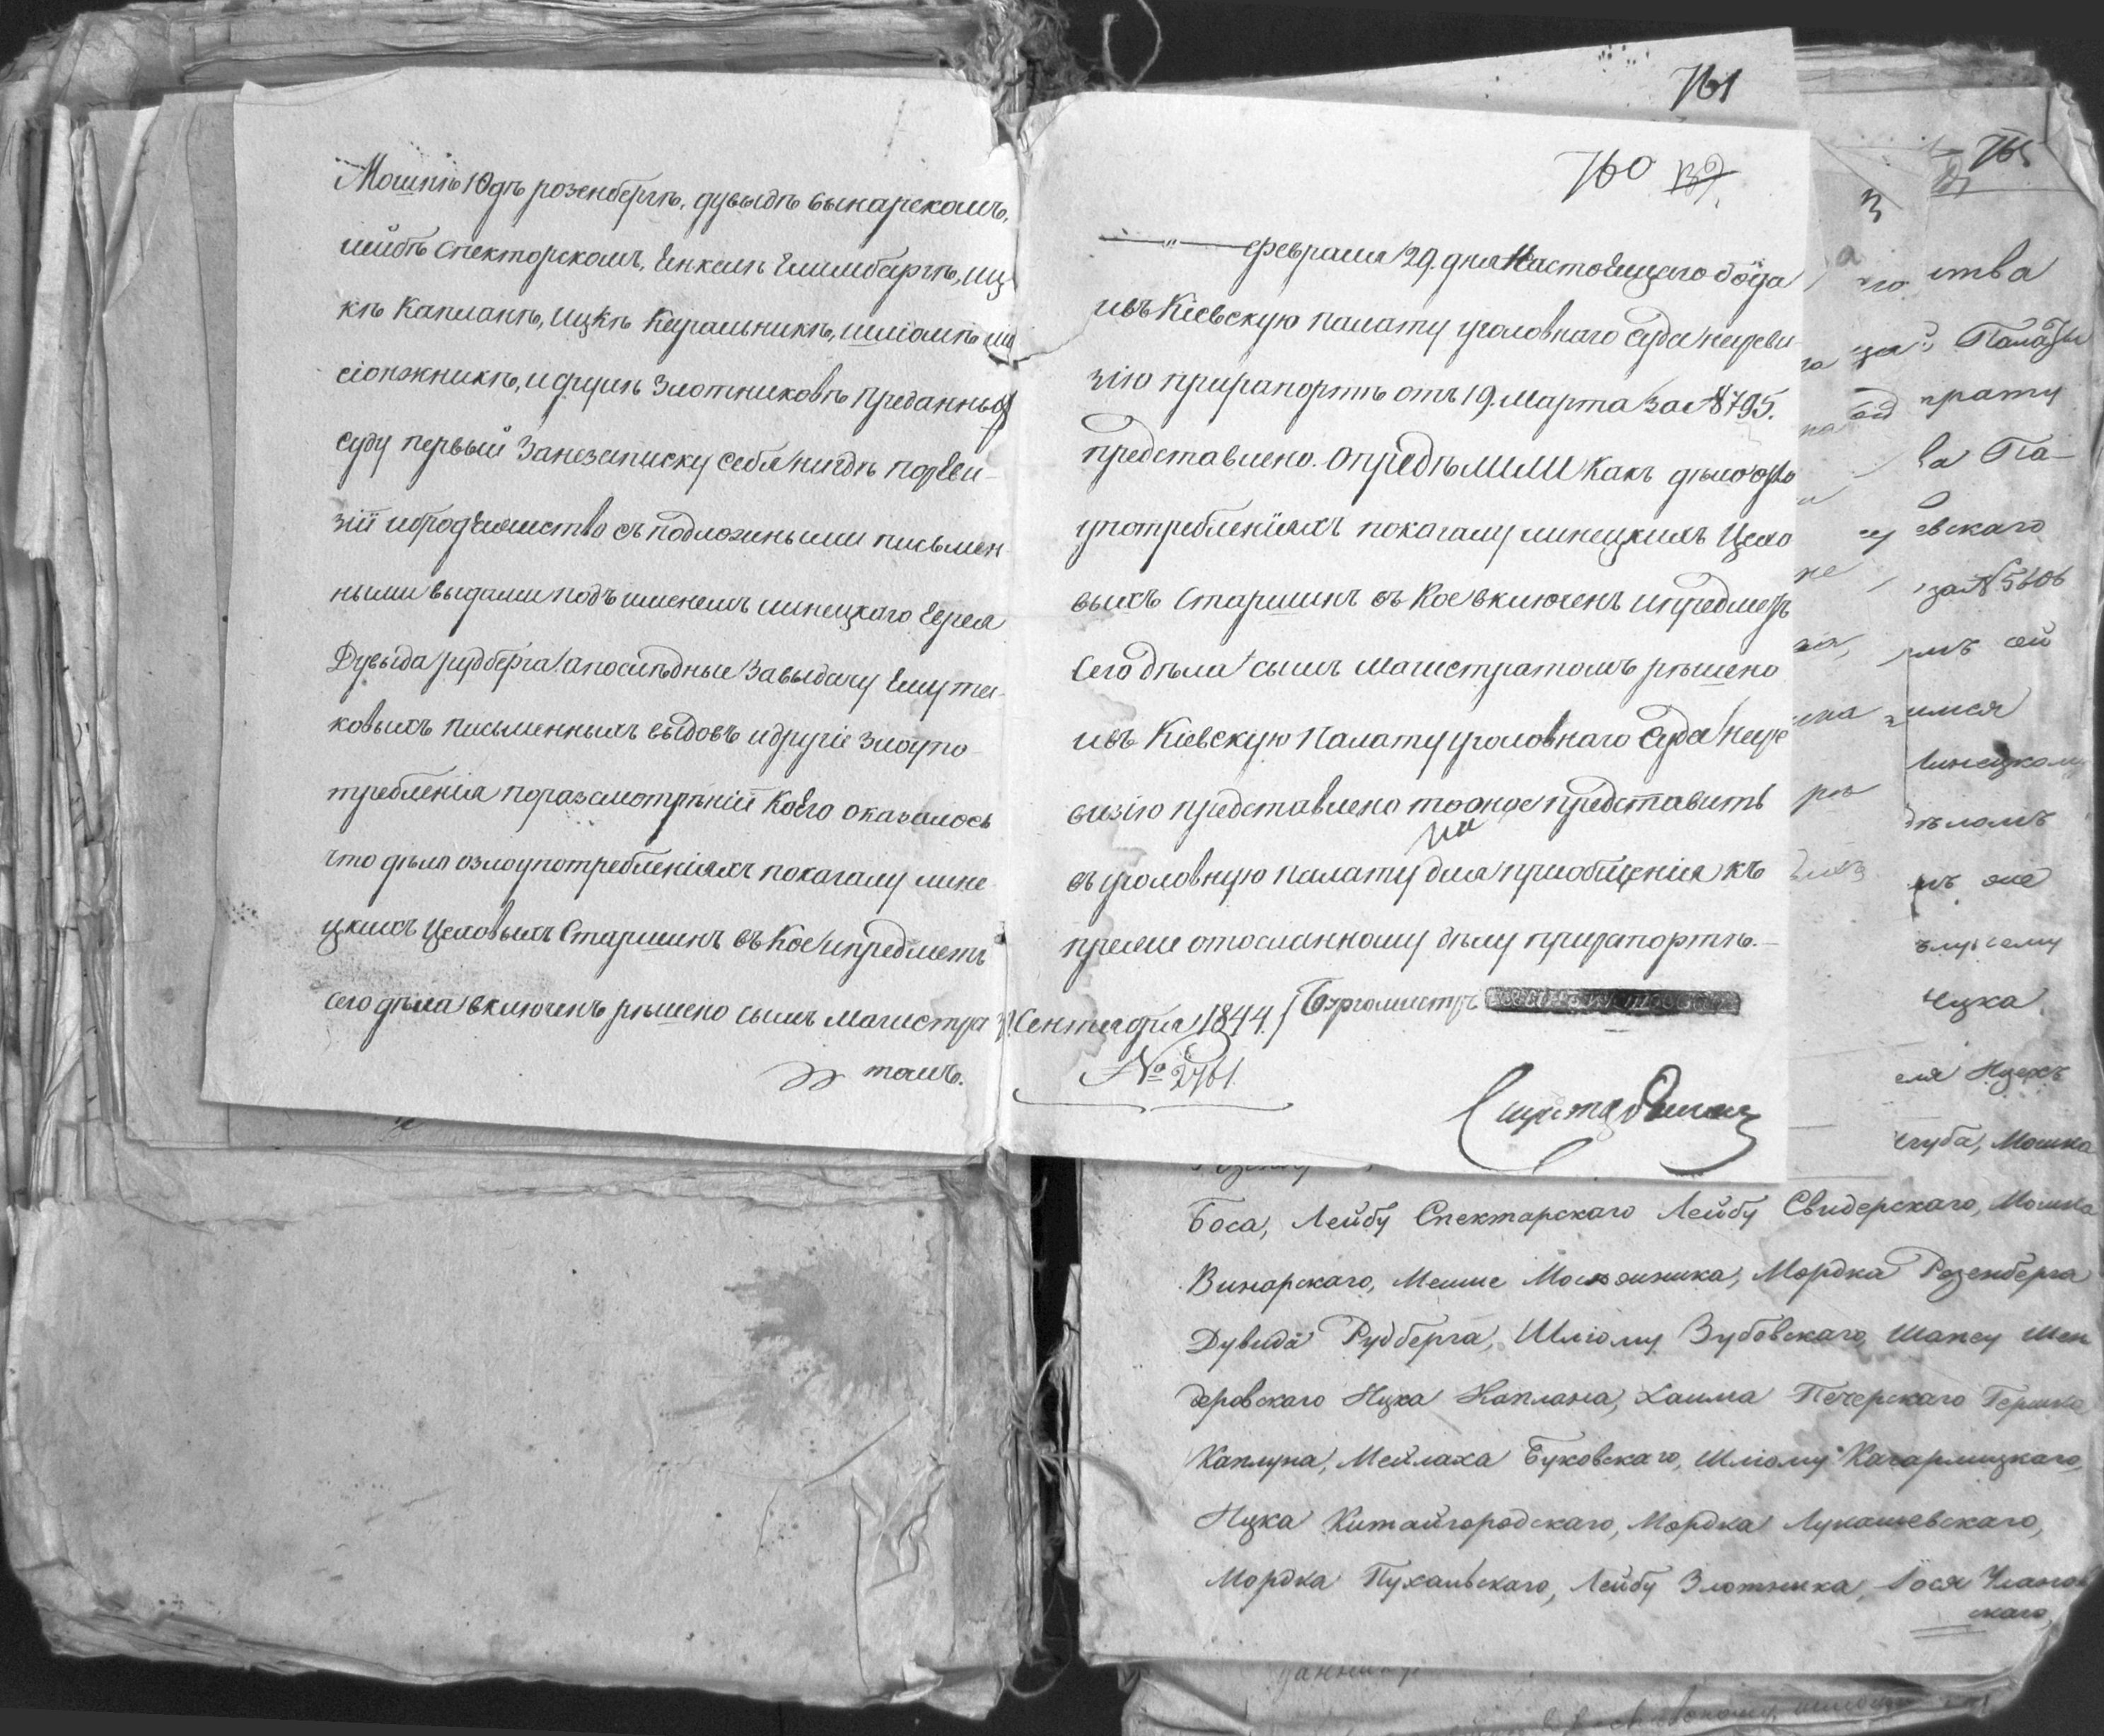 Мошкѣ Юдѣ розенбергѣ, дувыдѣ вынарскомъ,
лейбѣ Спекторскомъ, Енкелѣ Елимбергѣ, иц
кѣ Капланѣ, ицкѣ Кушнѣ
и Злотниковѣ преданныхъ
суду первый занезаписку себя нигдѣ поревѣ-
зіи ибродяжиство съ подложными писмен
ными выдами подъ именемъ линецкаго Еврея
Дувыда рудберга, апослѣдные завыдачу Ему та-
ковыхъ письменныхъ выдовъ идругіе злоупо-
требленія поразсмотрѣніи Коего оказалось
что дѣло озлоупотребленіяхъ покагалу лине
цкихъ Цеховыхъ Старшинъ въ Кое ипредметъ
сего дѣла включенъ рѣшено сымъ Магистра
томъ.
761
760
февраля 29. дня Настоящаго года
ивъ Кіевскую палату уголовнаго суда нареви
зію прирапортѣ отъ 19. Марта за № 795.
представлено. Опредѣлили Какъ дѣло озло
употребленіяхъ покагалу линецкихъ Цехо
выхъ Старшинъ въ Кое включенъ ипредметъ
сего дѣла сымъ магистратомъ рѣшено
ивъ Кіевскую Палату уголовнаго суда наре
визію представлено то оное представить
въ уголовную палату для приобщенія къ
прежде отосланному дѣлу прирапортѣ.
Сентября 1844. Бургомистръ
№ 2761.
765
3
ства
Палаты
врату
ва Па-
евскаго
за № 5606
сей
имся
Линецкому
дѣломъ
же
сему
Ицка
Мошка
Боса, Лейбу Спектарскаго Лейбу Свидерскаго, Мошка
Винарскаго, Мордка Розенберга
Дувида Рудберга, Шліому Зубовскаго, Шапсу Шен
деровскаго Ицка Каплана, Хаима Печерскаго Гершка
Каплуна, Мейлаха Буковскаго, Шліому Кагарлицкаго,
Ицка Китайгородскаго, Мордка Лукашевскаго,
Мордка Пухальскаго, Лейбу Злотника, Іося
скаго,